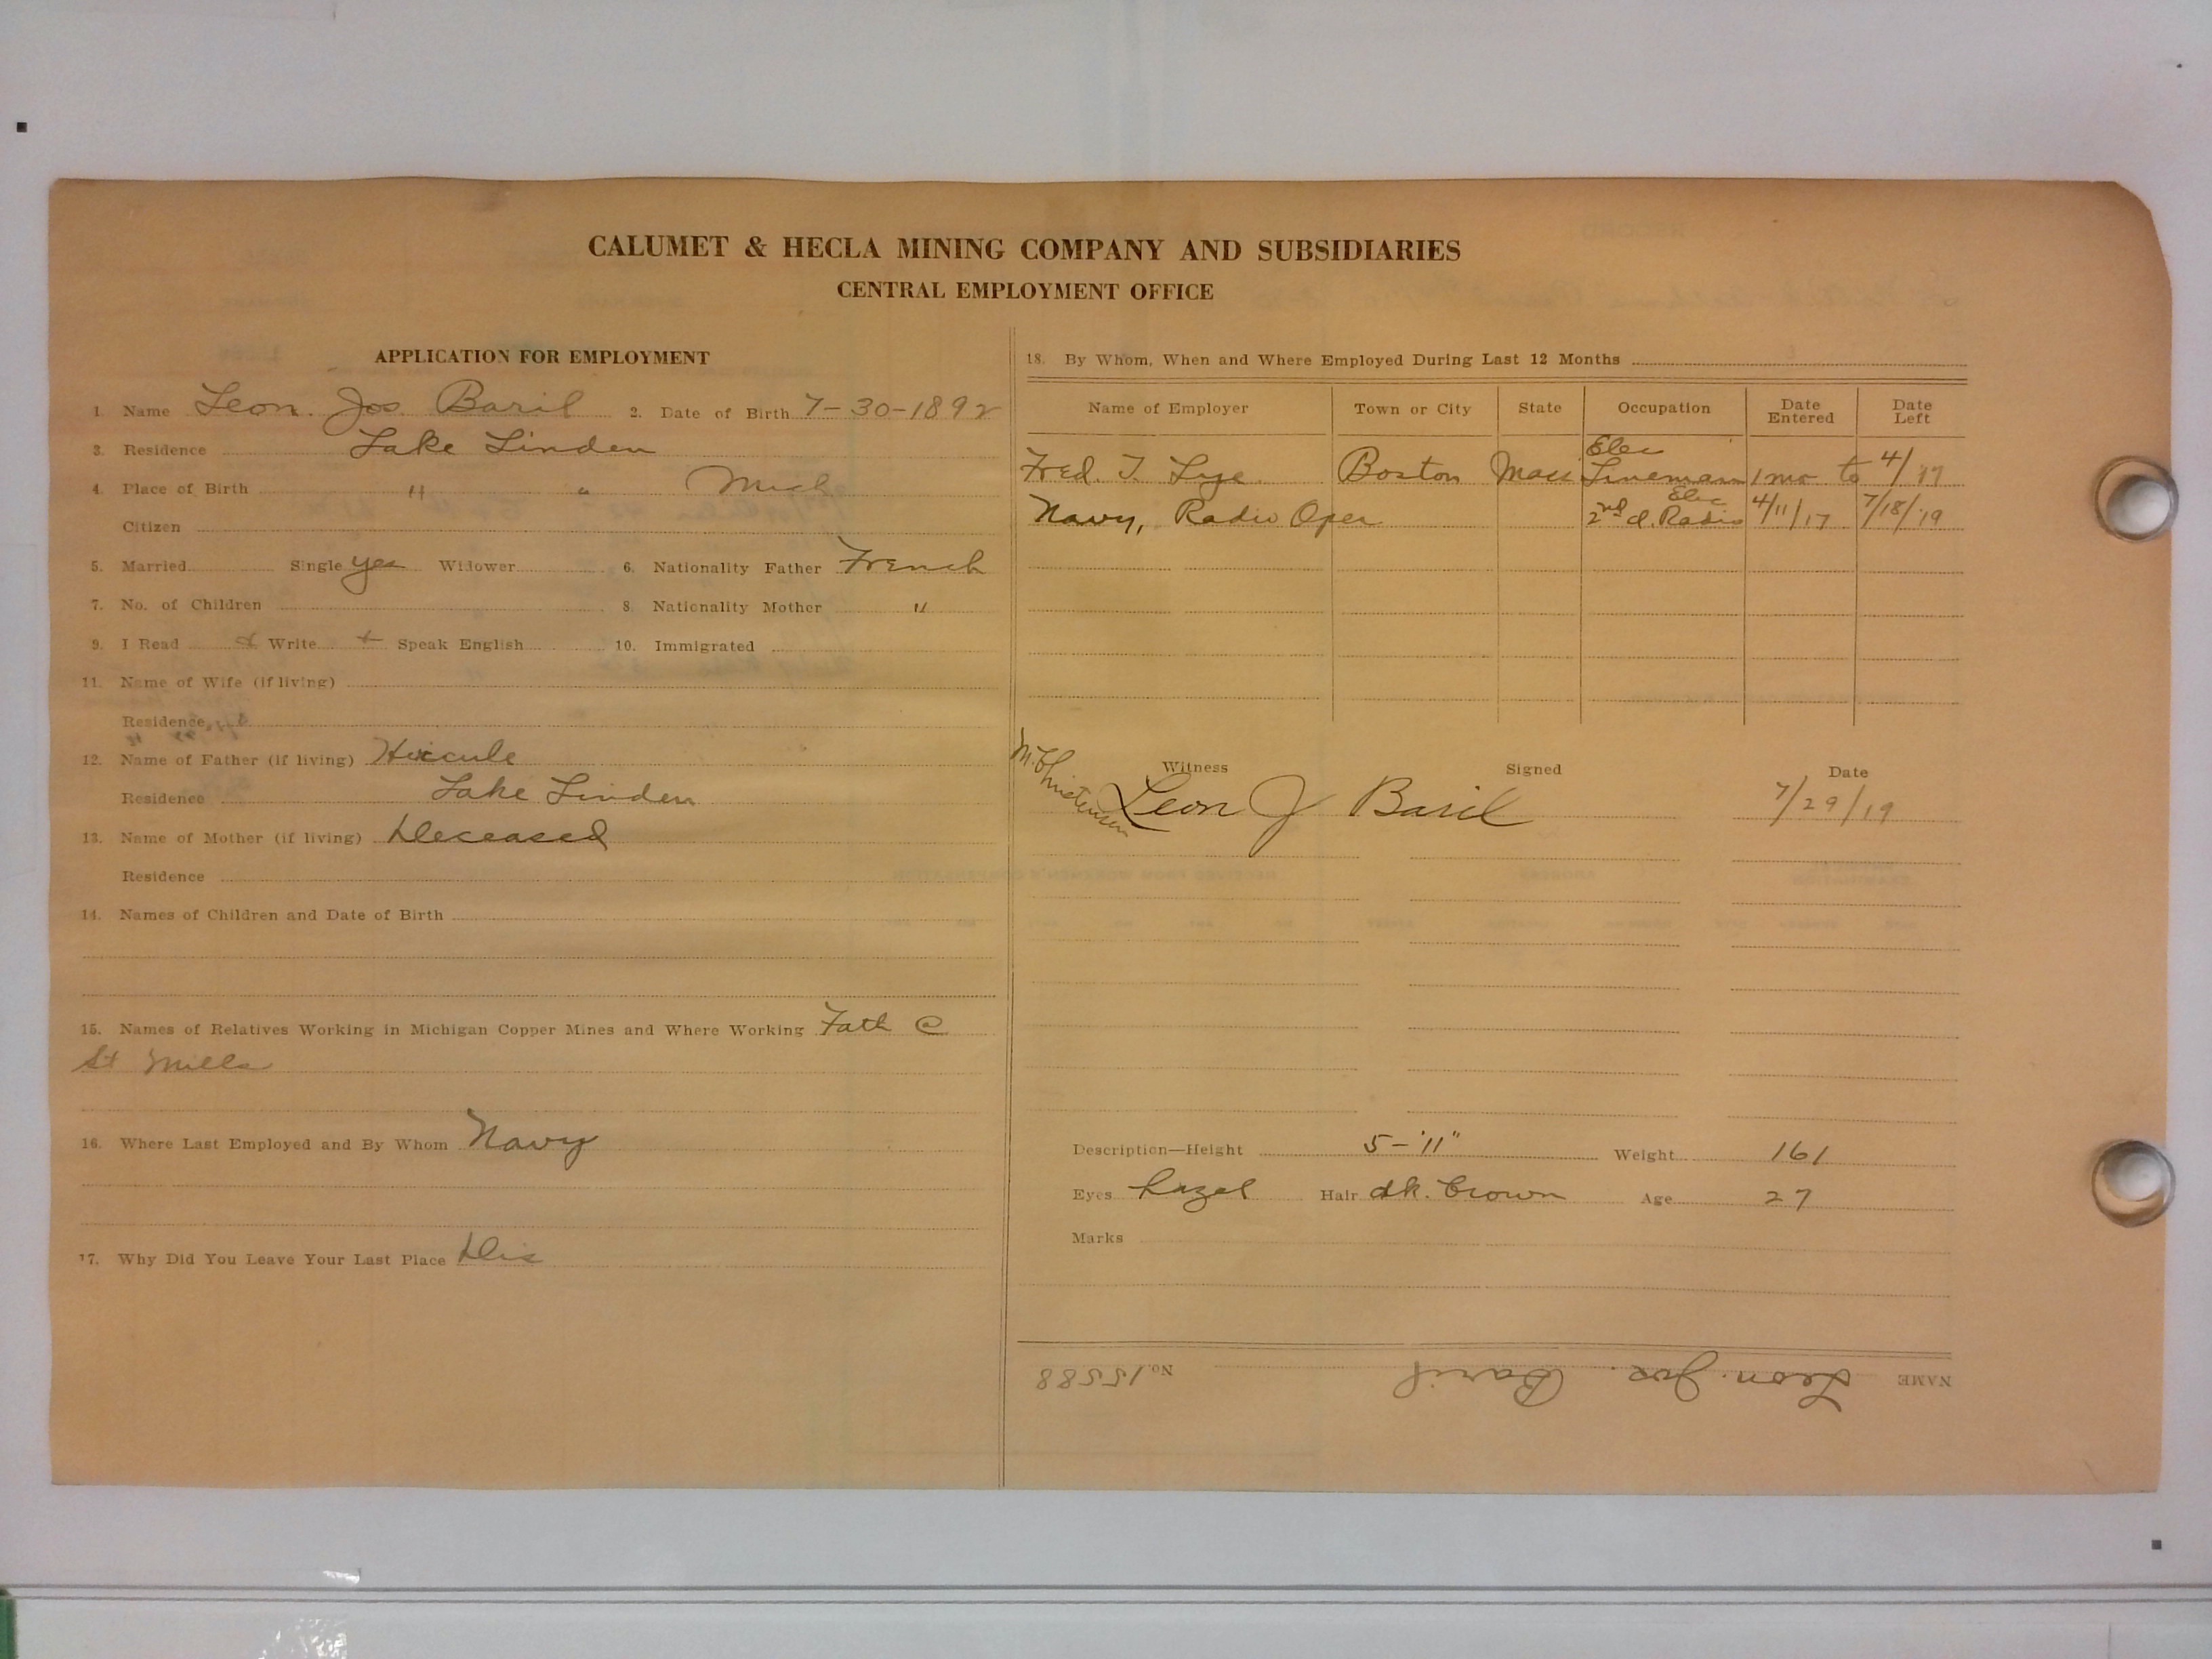 CALUMET & HECLA MINING COMPANY AND SUBSIDIARIES
CENTRAL EMPLOYMENT OFFICE
APPLICATION FOR EMPLOYMENT
1. Name Leon. Jos. Baril 2. Date of Birth 7-30-1892
3. Residence Lake Linden
4. Place of Birth " " Mich
Citizen
5. Married Single yes Widower 6. Nationality Father French
7. No. of Children 8. Nationality Mother "
9. I Read Write Speak English 10. Immigrated
11. Name of Wife (if living)
Residence
12. Name of Father (if living)
Residence Lake Linden
13. Name of Mother (if living) Deceased
Residence
14. Names of Children and Date of Birth
15. Names of Relatives Working in Michigan Copper Mines and Where Working Fath @
St Mills
16. Where Last Employed and By Whom Navy
17. Why Did You Leave Your Last Place Dis
18. By Whom, When and Where Employed During Last 12 Months
Name of Employer Town or City State Occupation Date Entered Date Left
Fred. T. Boston Mass Elec Lineman 1 mo to 4/17
Navy, Radio Oper 2nd cl. Radio Elec 4/11/17 7/18/19
Witness Signed Date
M. Christensen Leon J Baril 7/29/19
Description—Height 5-11" Weight 161
Eyes hazel Hair dk. brown Age 27
Marks
NAME Leon. Jos. Baril No. 15588